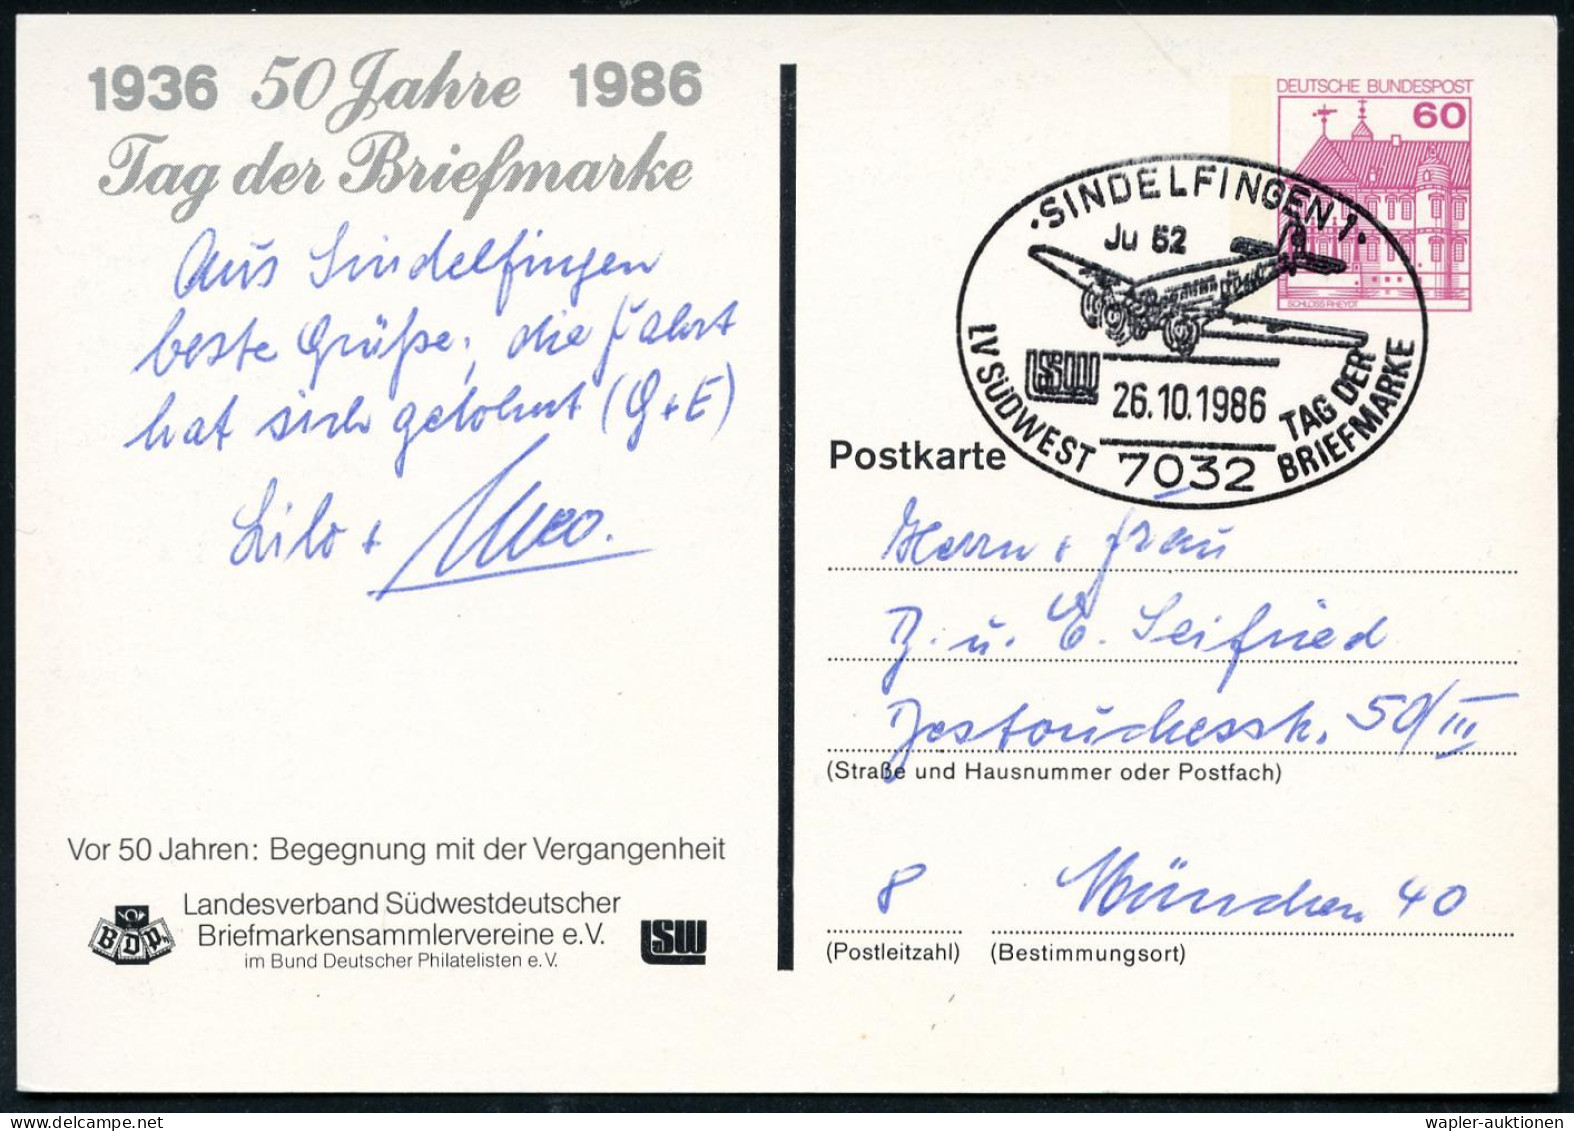 1936 50 Jahre 1986
Tag der Briefmarke
Aus Sindelfingen
beste Grüße, die Fahrt
hat sich gelohnt (G+E)
Lilo +
Vor 50 Jahren: Begegnung mit der Vergangenheit
BDPh
Landesverband Südwestdeutscher
Briefmarkensammlervereine e.V.
im Bund Deutscher Philatelisten e.V.
LSW
DEUTSCHE BUNDESPOST
60
SCHLOSS RHEYDT
·SINDELFINGEN 1·
Ju 52
LSW
26.10.1986
LV SÜDWEST
TAG DER
BRIEFMARKE
7032
Postkarte
Herrn + Frau
u. E. Seifried
50/III
(Straße und Hausnummer oder Postfach)
8 München 40
(Postleitzahl) (Bestimmungsort)
wapler-auktionen